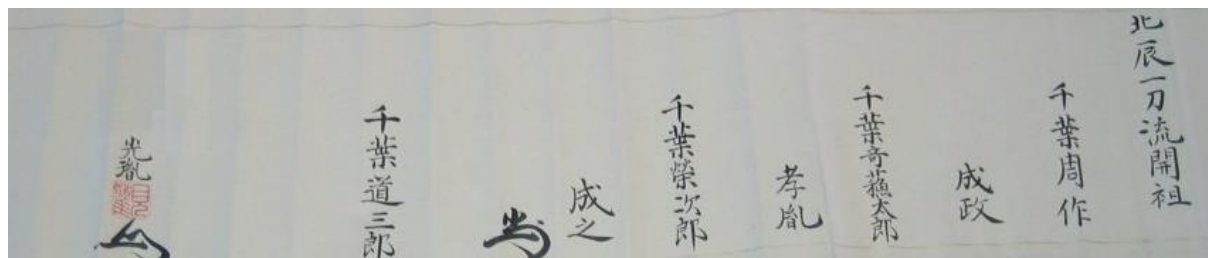 北辰一刀流開祖
千葉周作
成政
千葉奇蘓太郎
孝胤
千葉榮次郎
成之
千葉道三郎
光胤